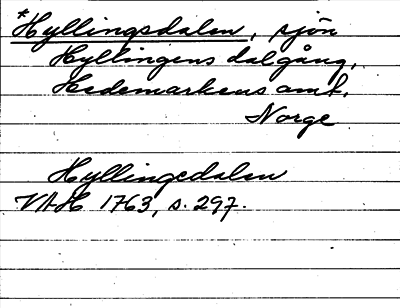 *Hyllingsdalen, sjön
Hyllingens dalgång,
Hedemarkens amt,
Norge
Hyllingedalen
VAH 1763, s. 297.